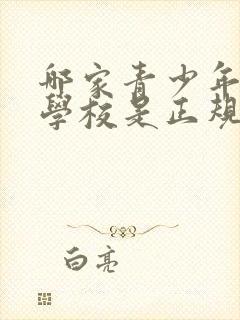 哪家青少年
學校是正規
白亮